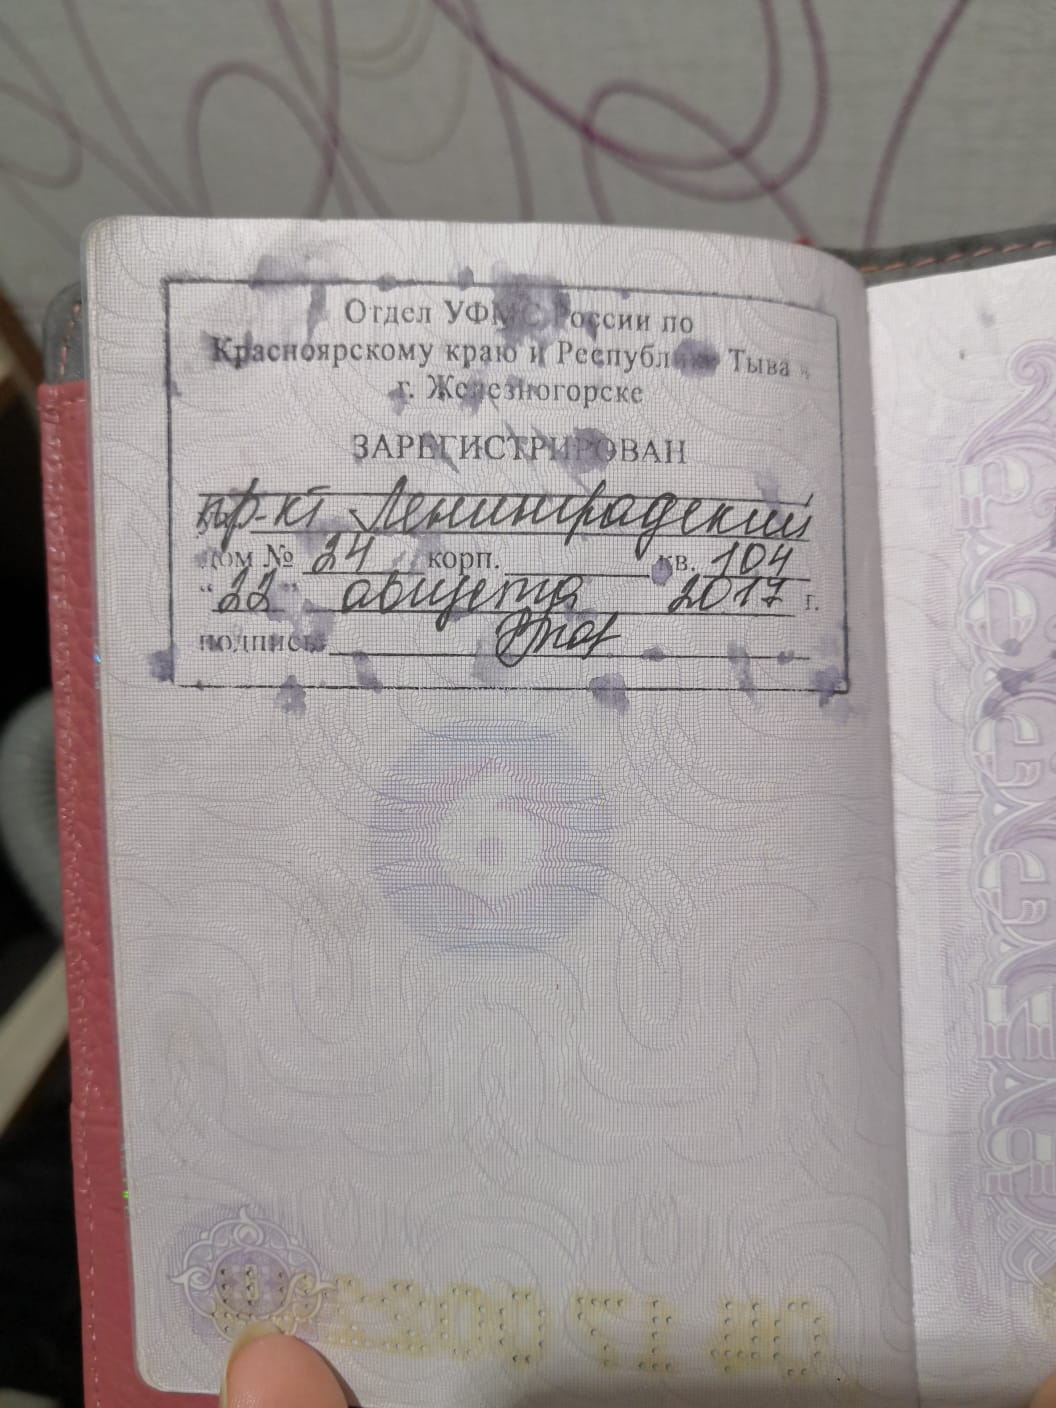 Отдел УФМС России по
Красноярскому краю и Республике Тыва в
г. Железногорске
ЗАРЕГИСТРИРОВАН
пр-кт Ленинградский
дом № 24 корп. кв. 104
"22" августа 2017 г.
подпись